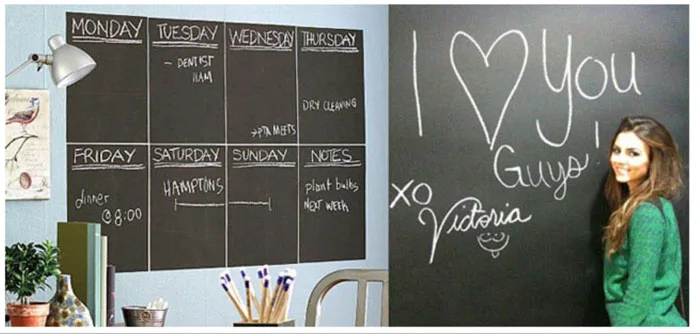 MONDAY
TUESDAY
- DENTIST
11AM
WEDNESDAY
→PTA MEETS
THURSDAY
DRY CLEANING
FRIDAY
dinner
@8:00
SATURDAY
HAMPTONS
SUNDAY
NOTES
plant bulbs
NEXT WEEK
I ♡ You
Guys!
XO
Victoria